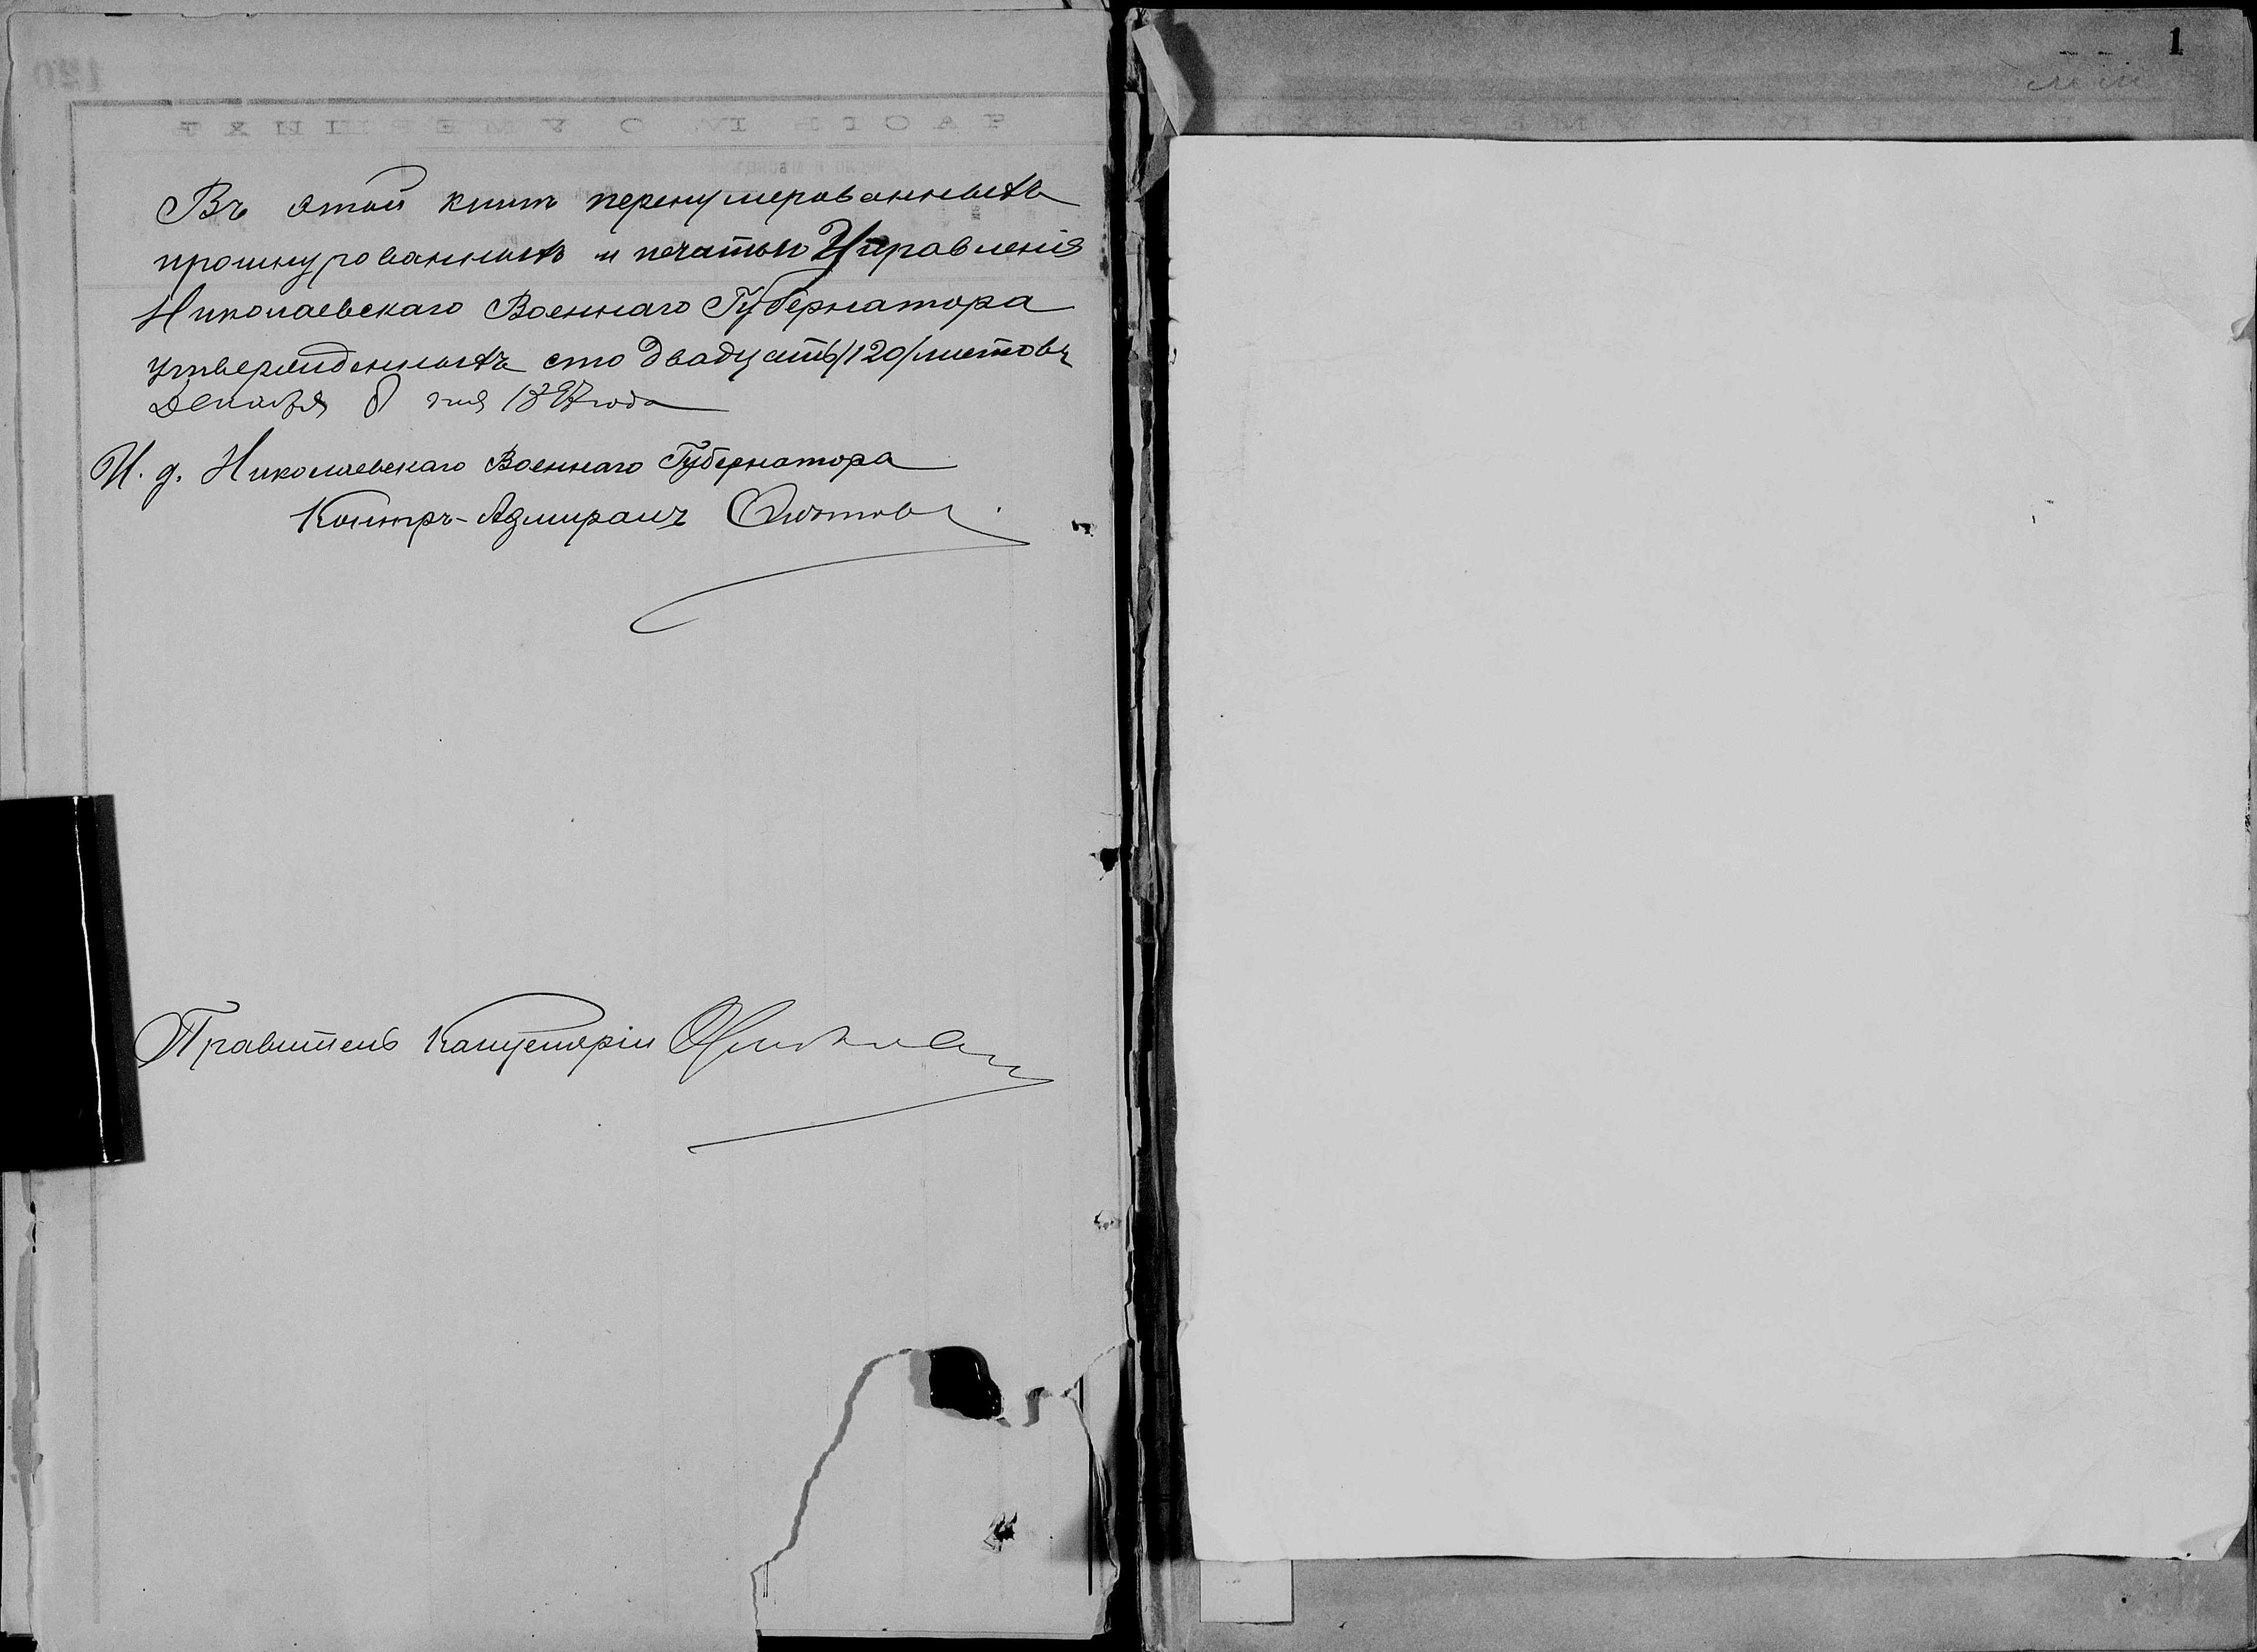 Въ этой книгѣ перенумерованныхъ
прошнурованныхъ и печатью Управленія
Николаевскаго Военнаго Губернатора
утвержденныхъ сто двадцать /120/ листовъ
Декабря 8 дня 1897 года
И. д. Николаевскаго Военнаго Губернатора
Контръ-Адмиралъ
Правитель Канцеляріи
ЧАСТЬ IV. О УМЕРШИХЪ
120
1